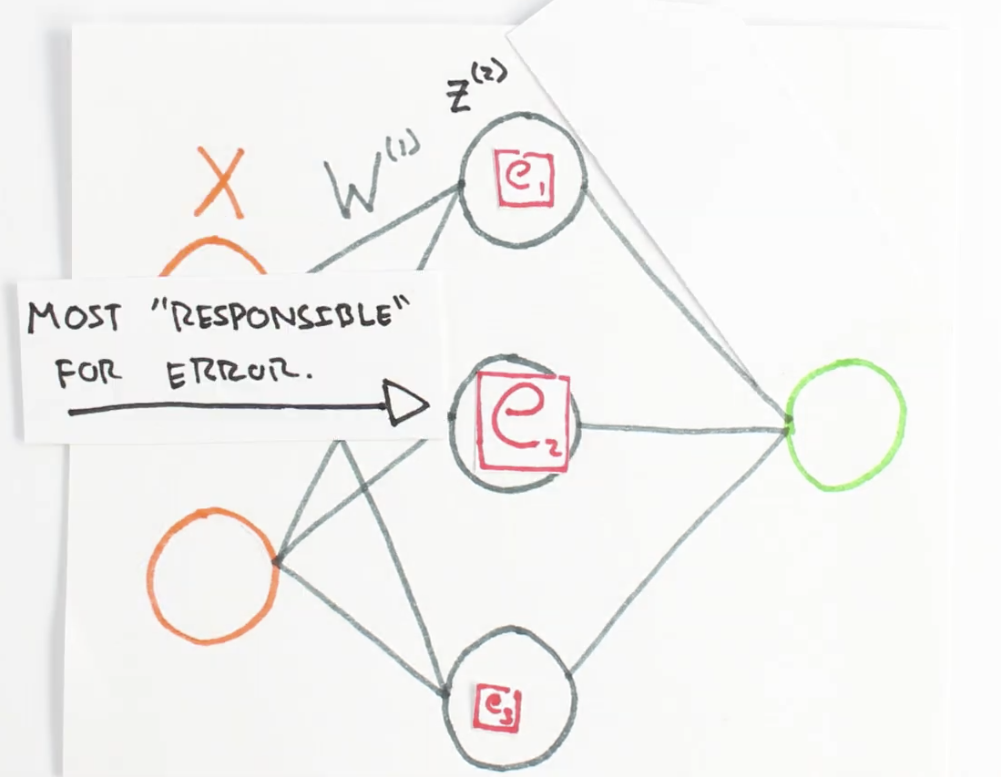 Z(2)
X
W(1)
e1
MOST "RESPONSIBLE"
FOR ERROR.
e2
e3